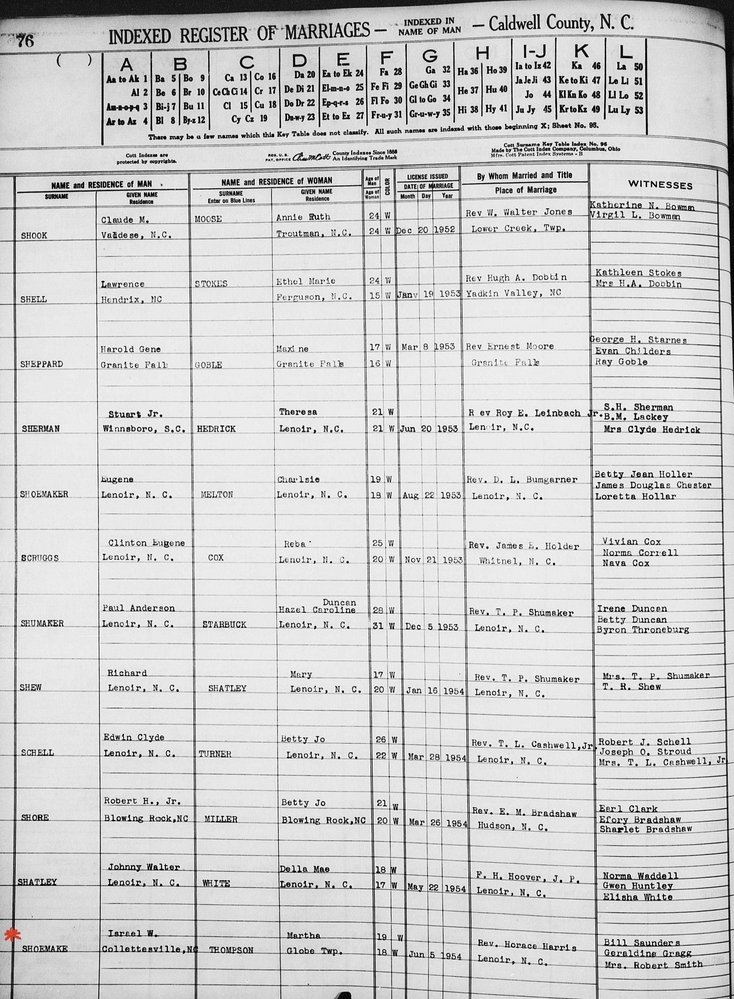 76
INDEXED REGISTER OF MARRIAGES — INDEXED IN NAME OF MAN — Caldwell County, N. C.
( )
A B C D E F G H I-J K L
Aa to Ak 1 Ba 5 Bo 9 Ca 13 Co 16 Da 20 Ea to Ek 24 Fa 28 Ga 32 Ha 36 Ho 39 Ia to Iz 42 Ka 46 La 50
Al 2 Be 6 Br 10 Ce Ch Ci 14 Cr 17 De Di 21 El-m-n-o 25 Fe Fi 29 Ge Gh Gi 33 He 37 Hu 40 Ja Je Ji 43 Ke to Ki 47 Le Li 51
Am-n-o-p-q 3 Bi-j 7 Bu 11 Cl 15 Cu 18 Do Dr 22 Ep-q-r-s 26 Fl Fo 30 Gl to Go 34 Hi 38 Hy 41 Jo 44 Kl Kn Ko 48 Ll Lo 52
Ar to Az 4 Bl 8 By-z 12 Cy Cz 19 Du-w-y 23 Et to Ez 27 Fr-u-y 31 Gr-u-w-y 35 Ju Jy 45 Kr to Kz 49 Lu Ly 53
There may be a few names which this Key Table does not classify. All such names are indexed with those beginning X; Sheet No. 95.
Cott Indexes are protected by copyrights.
REG. U. S. PAT. OFFICE
County Indexes Since 1888
An Identifying Trade Mark
Cott Surname Key Table Index No. 96
Made by The Cott Index Company, Columbus, Ohio
Mfrs. Cott Patent Index Systems - B
NAME and RESIDENCE OF MAN NAME and RESIDENCE OF WOMAN Age of Man Age of Woman COLOR LICENSE ISSUED DATE OF MARRIAGE By Whom Married and Title WITNESSES
SURNAME GIVEN NAME Residence SURNAME Enter on Blue Lines GIVEN NAME Residence Month Day Year Place of Marriage
Katherine N. Bowman
Claude M. MOOSE Annie Ruth 24 W Rev W. Walter Jones Virgil L. Bowman
SHOOK Valdese, N.C. Troutman, N.C. 24 W Dec 20 1952 Lower Creek, Twp.
Kathleen Stokes
Lawrence STOKES Ethel Marie 24 W Rev Hugh A. Dobbin Mrs H.A. Dobbin
SHELL Hendrix, NC Ferguson, N.C. 15 W Janv 19 1953 Yadkin Valley, NC
George H. Starnes
Harold Gene Maxine 17 W Mar 8 1953 Rev Ernest Moore Evan Childers
SHEPPARD Granite Fall GOBLE Granite Fall 16 W Granite Fall Ray Goble
S.H. Sherman
Stuart Jr. Theresa 21 W R ev Roy E. Leinbach Jr. B.M. Lackey
SHERMAN Winnsboro, S.C. HEDRICK Lenoir, N.C. 21 W Jun 20 1953 Lenoir, N.C. Mrs Clyde Hedrick
Betty Jean Holler
Eugene Charlsie 19 W Rev. D. L. Bumgarner James Douglas Chester
SHOEMAKER Lenoir, N. C. MELTON Lenoir, N. C. 18 W Aug 22 1953 Lenoir, N. C. Loretta Hollar
Vivian Cox
Clinton Eugene Reba 25 W Rev. James E. Holder Norma Correll
SCRUGGS Lenoir, N. C. COX Lenoir, N. C. 20 W Nov 21 1953 Whitnel, N. C. Nava Cox
Duncan
Paul Anderson Hazel Caroline 28 W Rev. T. P. Shumaker Irene Duncan
Betty Duncan
SHUMAKER Lenoir, N. C. STARBUCK Lenoir, N. C. 31 W Dec 5 1953 Lenoir, N. C. Byron Throneburg
Richard Mary 17 W Rev. T. P. Shumaker Mrs. T. P. Shumaker
SHEW Lenoir, N. C. SHATLEY Lenoir, N. C. 20 W Jan 16 1954 Lenoir, N. C. T. R. Shew
Edwin Clyde Betty Jo 26 W Rev. T. L. Cashwell, Jr. Robert J. Schell
Joseph O. Stroud
SCHELL Lenoir, N. C. TURNER Lenoir, N. C. 22 W Mar 28 1954 Lenoir, N. C. Mrs. T. L. Cashwell, Jr
Robert H., Jr. Betty Jo 21 W Rev. E. M. Bradshaw Earl Clark
Efory Bradshaw
SHORE Blowing Rock,NC MILLER Blowing Rock,NC 20 W Mar 26 1954 Hudson, N. C. Sharlet Bradshaw
Johnny Walter Della Mae 18 W F. H. Hoover, J. P. Norma Waddell
Gwen Huntley
SHATLEY Lenoir, N. C. WHITE Lenoir, N. C. 17 W May 22 1954 Lenoir, N. C. Elisha White
Israel W. Martha 19 W Rev. Horace Harris Bill Saunders
Geraldine Gragg
SHOEMAKE Collettesville,NC THOMPSON Globe Twp. 18 W Jun 5 1954 Lenoir, N. C. Mrs. Robert Smith